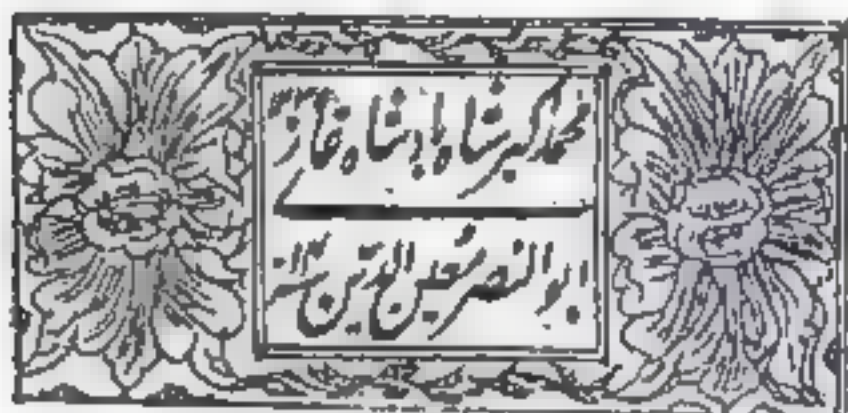 محمد اکبر شاه پادشاه غازی
ابو النصر معین الدین